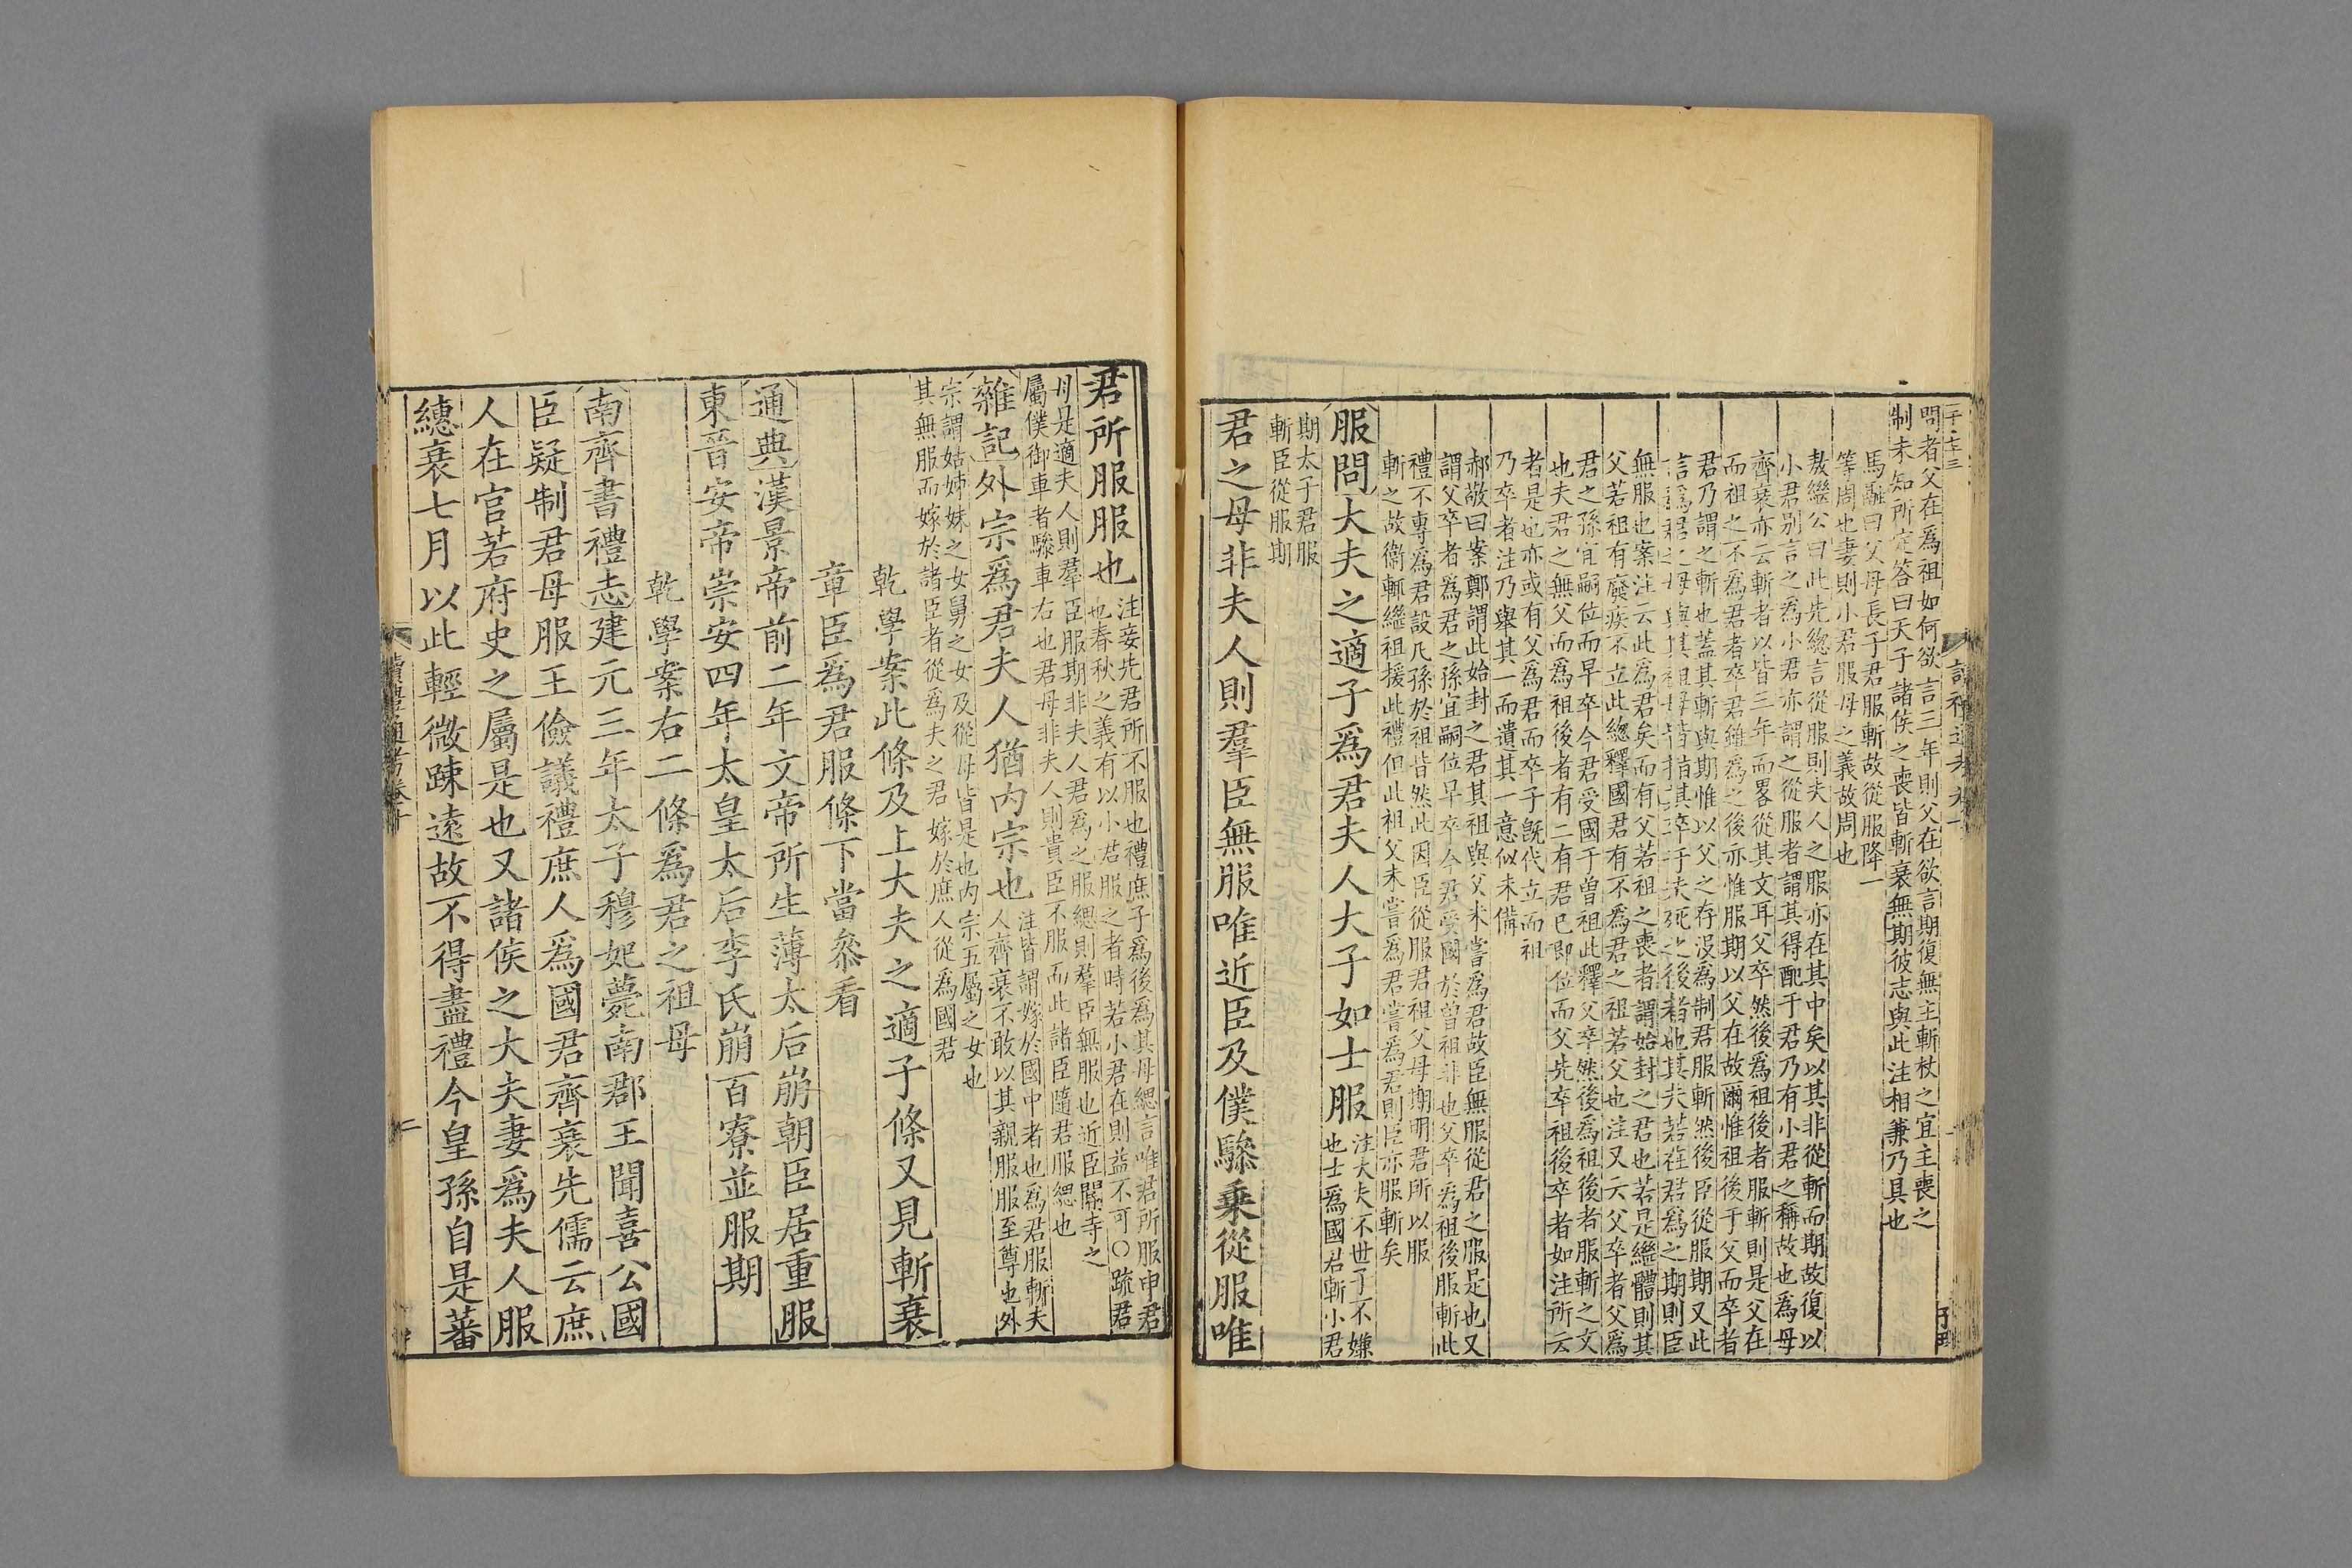 問者父在爲祖如何欲言三年則父在欲言期復無主斬杖之宜主喪之
制未知所定答曰天子諸侯之喪皆斬衰無期彼志與此注相兼乃具也
馬融曰父母長子君服斬故從服降一
等周也妻則小君服母之義故周也
敖繼公曰此先總言從服則夫人之服亦在其中矣以其非從斬而期故復以
小君别言之爲小君亦謂之從服者謂其得配于君乃有小君之稱故也爲母
齊衰亦云斬者以皆三年而畧從其文耳父卒然後爲祖後者服斬則是父在
而祖之不爲君者卒君雖爲之後亦惟服期以父在故爾惟祖後于父而卒者
君乃謂之斬也蓋其斬與期惟以父之存没爲制君服斬然後臣從服期又此
言爲君之母與其祖母皆指其卒于夫死之後者也其夫若在君爲之期則臣
無服也案注云此爲君矣而有父若祖之喪者謂始封之君也若是繼體則其
父若祖有廢疾不立此總釋國君有不爲君之祖若父也注又云父卒者父爲
君之孫宜嗣位而早卒今君受國于曾祖此釋父卒然後爲祖後者服斬之文
也夫君之無父而爲祖後者有二有君已即位而父先卒祖後卒者如注所云
者是也亦或有父爲君而卒子旣代立而祖
乃卒者注乃舉其一而遺其一意似未備
郝敬曰案鄭謂此始封之君其祖與父未嘗爲君故臣無服從君之服是也又
謂父卒者爲君之孫宜嗣位早卒今君受國於曾祖非也父卒爲祖後服斬此
禮不專爲君設凡孫於祖皆然此因臣從服君祖父母期明君所以服
斬之故衞輒繼祖援此禮但此祖父未嘗爲君嘗爲君則臣亦服斬矣
服問大夫之適子爲君夫人大子如士服注大夫不世子不嫌
也士爲國君斬小君
期太子君服
斬臣從服期
君之母非夫人則羣臣無服唯近臣及僕驂乗從服唯
君所服服也注妾先君所不服也禮庶子爲後爲其母緦言唯君所服申君
也春秋之義有以小君服之者時若小君在則益不可○疏君
母是適夫人則羣臣服期非夫人君爲之服緦則羣臣無服也近臣閽寺之
屬僕御車者驂車右也君母非夫人則貴臣不服而此諸臣隨君服緦也
雜記外宗爲君夫人猶內宗也注皆謂嫁於國中者也爲君服斬夫
人齊衰不敢以其親服服至尊也外
宗謂姑姊妹之女舅之女及從母皆是也內宗五屬之女也
其無服而嫁於諸臣者從爲夫之君嫁於庶人從爲國君
乾學案此條及上大夫之適子條又見斬衰
章臣爲君服條下當叅看
通典漢景帝前二年文帝所生薄太后崩朝臣居重服
東晉安帝崇安四年太皇太后李氏崩百寮並服期
乾學案右二條爲君之祖母
南齊書禮志建元三年太子穆妃薨南郡王聞喜公國
臣疑制君母服王儉議禮庶人爲國君齊衰先儒云庶
人在官若府史之屬是也又諸侯之大夫妻爲夫人服
繐衰七月以此輕微疎遠故不得盡禮今皇孫自是蕃
讀禮通考卷十
二